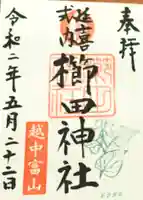 奉拝
延喜
式内
櫛田神社
越中富山
令和二年五月二十二日